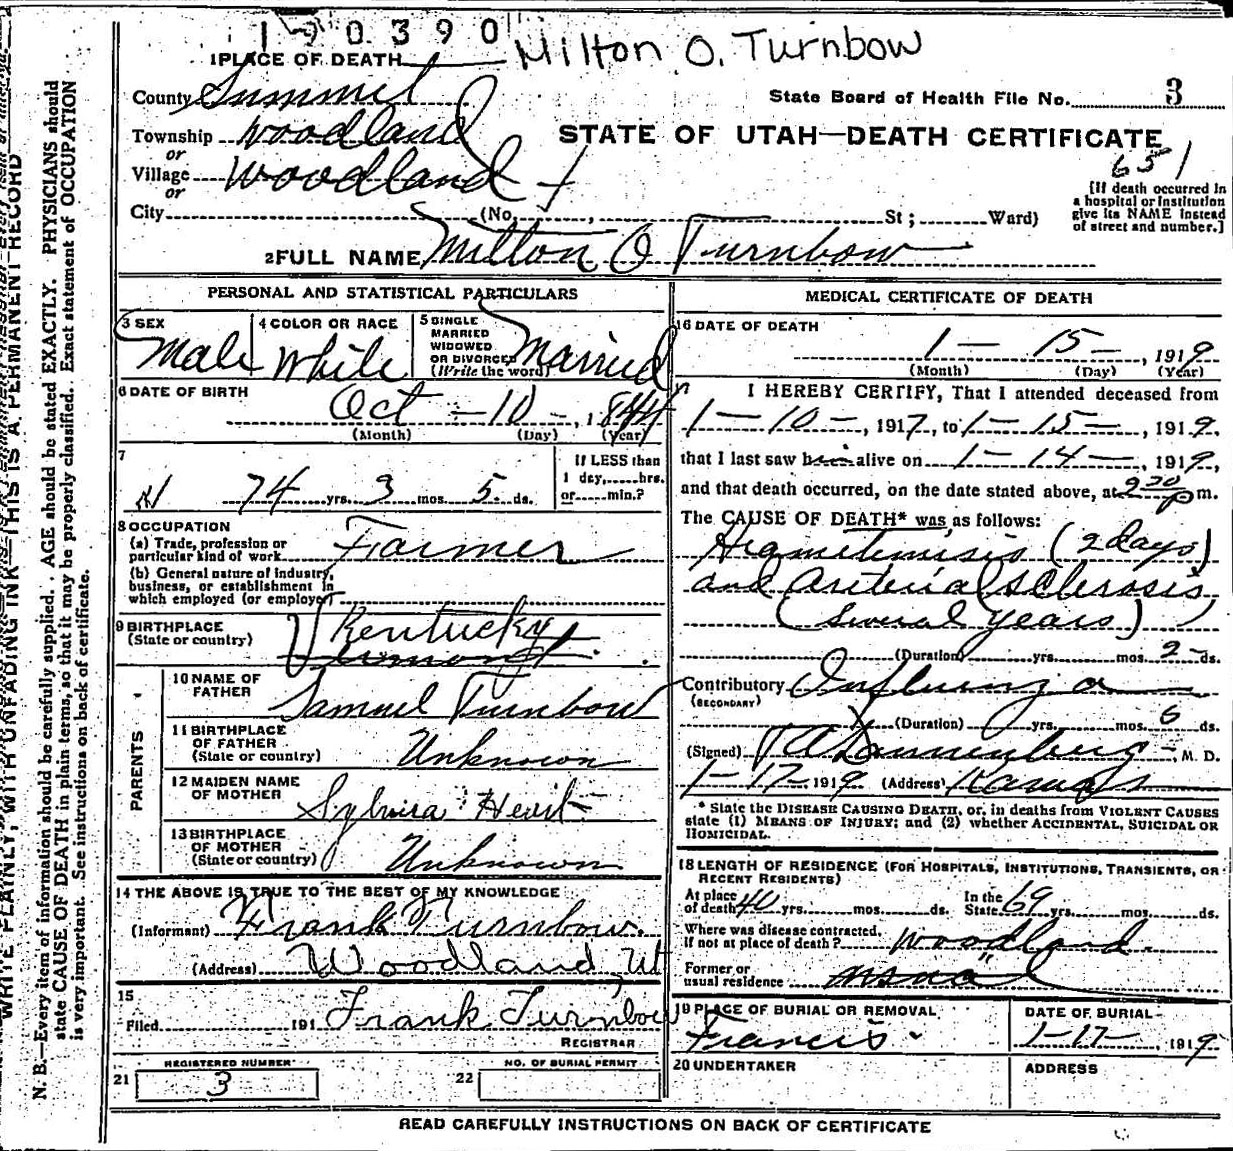 190390 Milton O. Turnbow
1 PLACE OF DEATH
County Summit
State Board of Health File No. 3
Township Woodland
STATE OF UTAH—DEATH CERTIFICATE
or
Village Woodland
651
or
City (No. , St ; Ward)
[If death occurred in
a hospital or institution
give its NAME instead
of street and number.]
2 FULL NAME Milton O Turnbow
PERSONAL AND STATISTICAL PARTICULARS
3 SEX Male
4 COLOR OR RACE White
5 SINGLE
MARRIED
WIDOWED
OR DIVORCED
(Write the word) Married
6 DATE OF BIRTH
Oct - 10 - , 1844
(Month) (Day) (Year)
7
74 yrs. 3 mos. 5 ds.
If LESS than
1 day, hrs.
or min.?
8 OCCUPATION
(a) Trade, profession or
particular kind of work Farmer
(b) General nature of industry,
business, or establishment in
which employed (or employer)
9 BIRTHPLACE
(State or country) Kentucky
Vermont
PARENTS
10 NAME OF
FATHER Samuel Turnbow
11 BIRTHPLACE
OF FATHER
(State or country) Unknown
12 MAIDEN NAME
OF MOTHER Sylvira
13 BIRTHPLACE
OF MOTHER
(State or country) Unknown
14 THE ABOVE IS TRUE TO THE BEST OF MY KNOWLEDGE
(Informant) Frank Turnbow.
(Address) Woodland, Ut
15
Filed 191 Frank Turnbow
REGISTRAR
REGISTERED NUMBER
21 3
NO. OF BURIAL PERMIT
22
MEDICAL CERTIFICATE OF DEATH
16 DATE OF DEATH
1 - 15 - , 1919
(Month) (Day) (Year)
17 I HEREBY CERTIFY, That I attended deceased from
1 - 10 - , 1917, to 1 - 15 - , 1919,
that I last saw him alive on 1 - 14 - , 1919,
and that death occurred, on the date stated above, at 930 pm.
The CAUSE OF DEATH* was as follows:
Hematemisis (2 days)
and Arterial Sclerosis
(Several years)
(Duration) yrs. mos. 2 ds.
Contributory Influenza
(SECONDARY)
(Duration) yrs. mos. 6 ds.
(Signed) Dannenberg, M. D.
1-17-1919 (Address) Kamas
* State the DISEASE CAUSING DEATH, or, in deaths from VIOLENT CAUSES
state (1) MEANS OF INJURY; and (2) whether ACCIDENTAL, SUICIDAL OR
HOMICIDAL.
18 LENGTH OF RESIDENCE (FOR HOSPITALS, INSTITUTIONS, TRANSIENTS, OR
RECENT RESIDENTS)
At place
of death 40 yrs. mos. ds.
In the
State 69 yrs. mos. ds.
Where was disease contracted,
if not at place of death? Woodland.
Former or
usual residence
19 PLACE OF BURIAL OR REMOVAL
Francis
DATE OF BURIAL
1-17- , 1919
20 UNDERTAKER
ADDRESS
READ CAREFULLY INSTRUCTIONS ON BACK OF CERTIFICATE
WRITE PLAINLY, WITH UNFADING INK—THIS IS A PERMANENT RECORD
N. B.—Every item of information should be carefully supplied. AGE should be stated EXACTLY. PHYSICIANS should
state CAUSE OF DEATH in plain terms, so that it may be properly classified. Exact statement of OCCUPATION
is very important. See instructions on back of certificate.